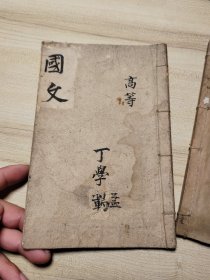 高等
國文
丁學
孟